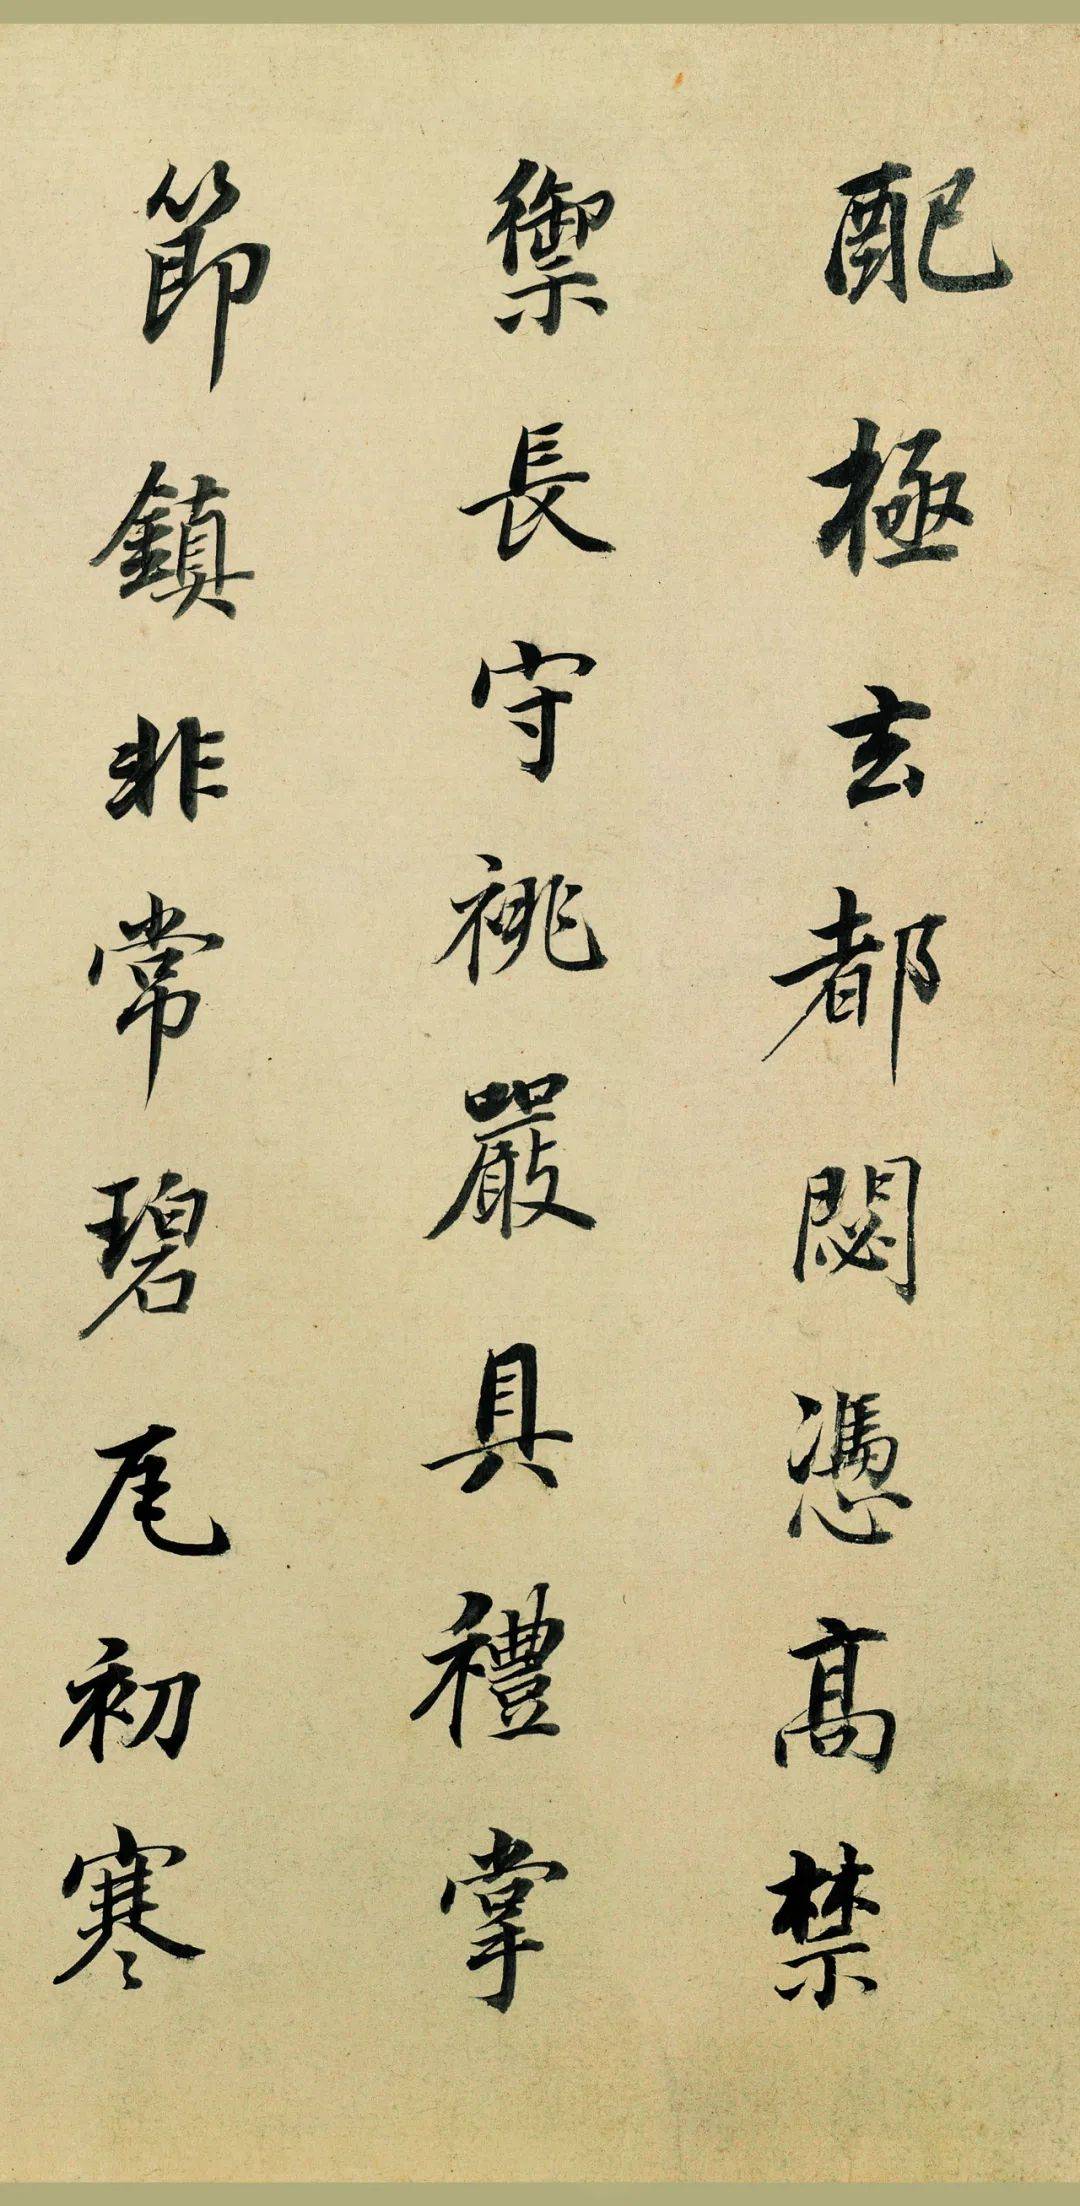 配極玄都閟憑高禁
禦長守祧嚴具禮掌
節鎮非常碧尾初寒